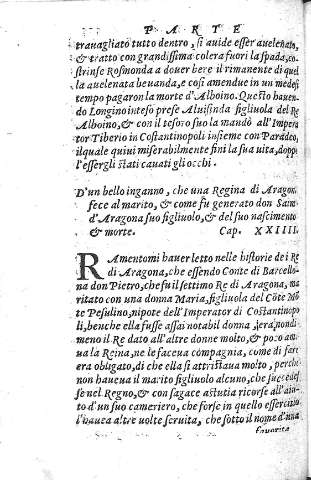 PARTE
trauagliato tutto dentro, si auide esser auelenato,
& tratto con grandissima colera fuori la spada, co
strinse Rosmonda a douer bere il rimanente di quel
la auelenata beuanda, e così amendue in un medesi
tempo pagaron la morte d'Alboino. Questo hauen
do Longino inteso prese Aluisinda figliuola del Re
Alboino, & con il tesoro suo la mandò all'Impera
tor Tiberio in Costantinopoli insieme con Paradeo,
ilquale quiui miserabilmente finì la sua uita, doppo
l'essergli stati cauati gli occhi.
D'un bello inganno, che una Regina di Aragona
fece al marito, & come fu generato don Iaim
d'Aragona suo figliuolo, & del suo nascimento
& morte. Cap. XXIIII.
RAmentomi hauer letto nelle historie dei Re
di Aragona, che essendo Conte di Barcello
na don Pietro, che fu il settimo Re di Aragona, ma
ritato con una donna Maria, figliuola del Cõte Mõ
te Pesulino, nipote dell'Imperator di Costantinopo
li, benche ella fusse assai notabil donna, era nondi
meno il Re dato all'altre donne molto, & poco ama
ua la Reina, ne le faceua compagnia, come di fare
era obligato, di che ella si attristaua molto, perche
non haueua il marito figliuolo alcuno, che succedes
se nel Regno, & con sagace astutia ricorse all'aiu
to d'un suo cameriero, che forse in quello essercitio
l'hauea altre uolte seruita, che sotto il nome d'una
fauorita